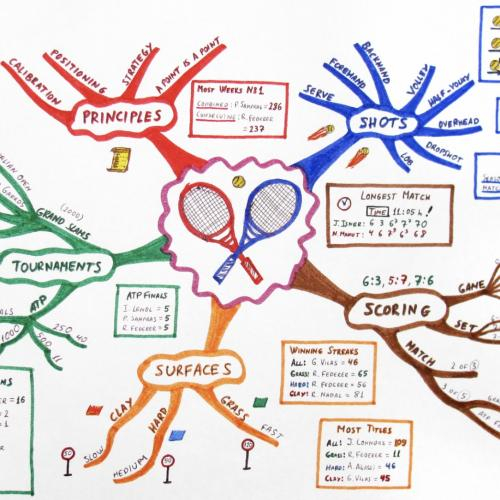 CALIBRATION
POSITIONING
STRATEGY
A POINT IS A POINT
PRINCIPLES
MOST WEEKS №1
COMBINED: P. SAMPRAS = 286
CONSECUTIVE: R. FEDERER
= 237
SERVE
FOREHAND
BACKHAND
VOLLEY
HALF-VOLLEY
OVERHEAD
DROPSHOT
LOB
SHOTS
LONGEST MATCH
TIME 11:05 h!
J. ISNER: 6 3 6⁷ 7⁶ 70
N. MAHUT: 4 6 7⁹ 6³ 68
GRAND SLAMS
(2000)
TOURNAMENTS
ATP
1000
500
250
40
11
ATP FINALS
I. LENDL = 5
P. SAMPRAS = 5
R. FEDERER = 5
6:3, 5:7, 7:6
SCORING
GAME
SET
MATCH
2 OF 3
3 OF 5
SURFACES
CLAY
HARD
GRASS
SLOW
MEDIUM
FAST
WINNING STREAKS
ALL: G. VILAS = 46
GRASS: R. FEDERER = 65
HARD: R. FEDERER = 56
CLAY: R. NADAL = 81
MOST TITLES
ALL: J. CONNORS = 109
GRASS: R. FEDERER = 11
HARD: A. AGASSI = 46
CLAY: G. VILAS = 45